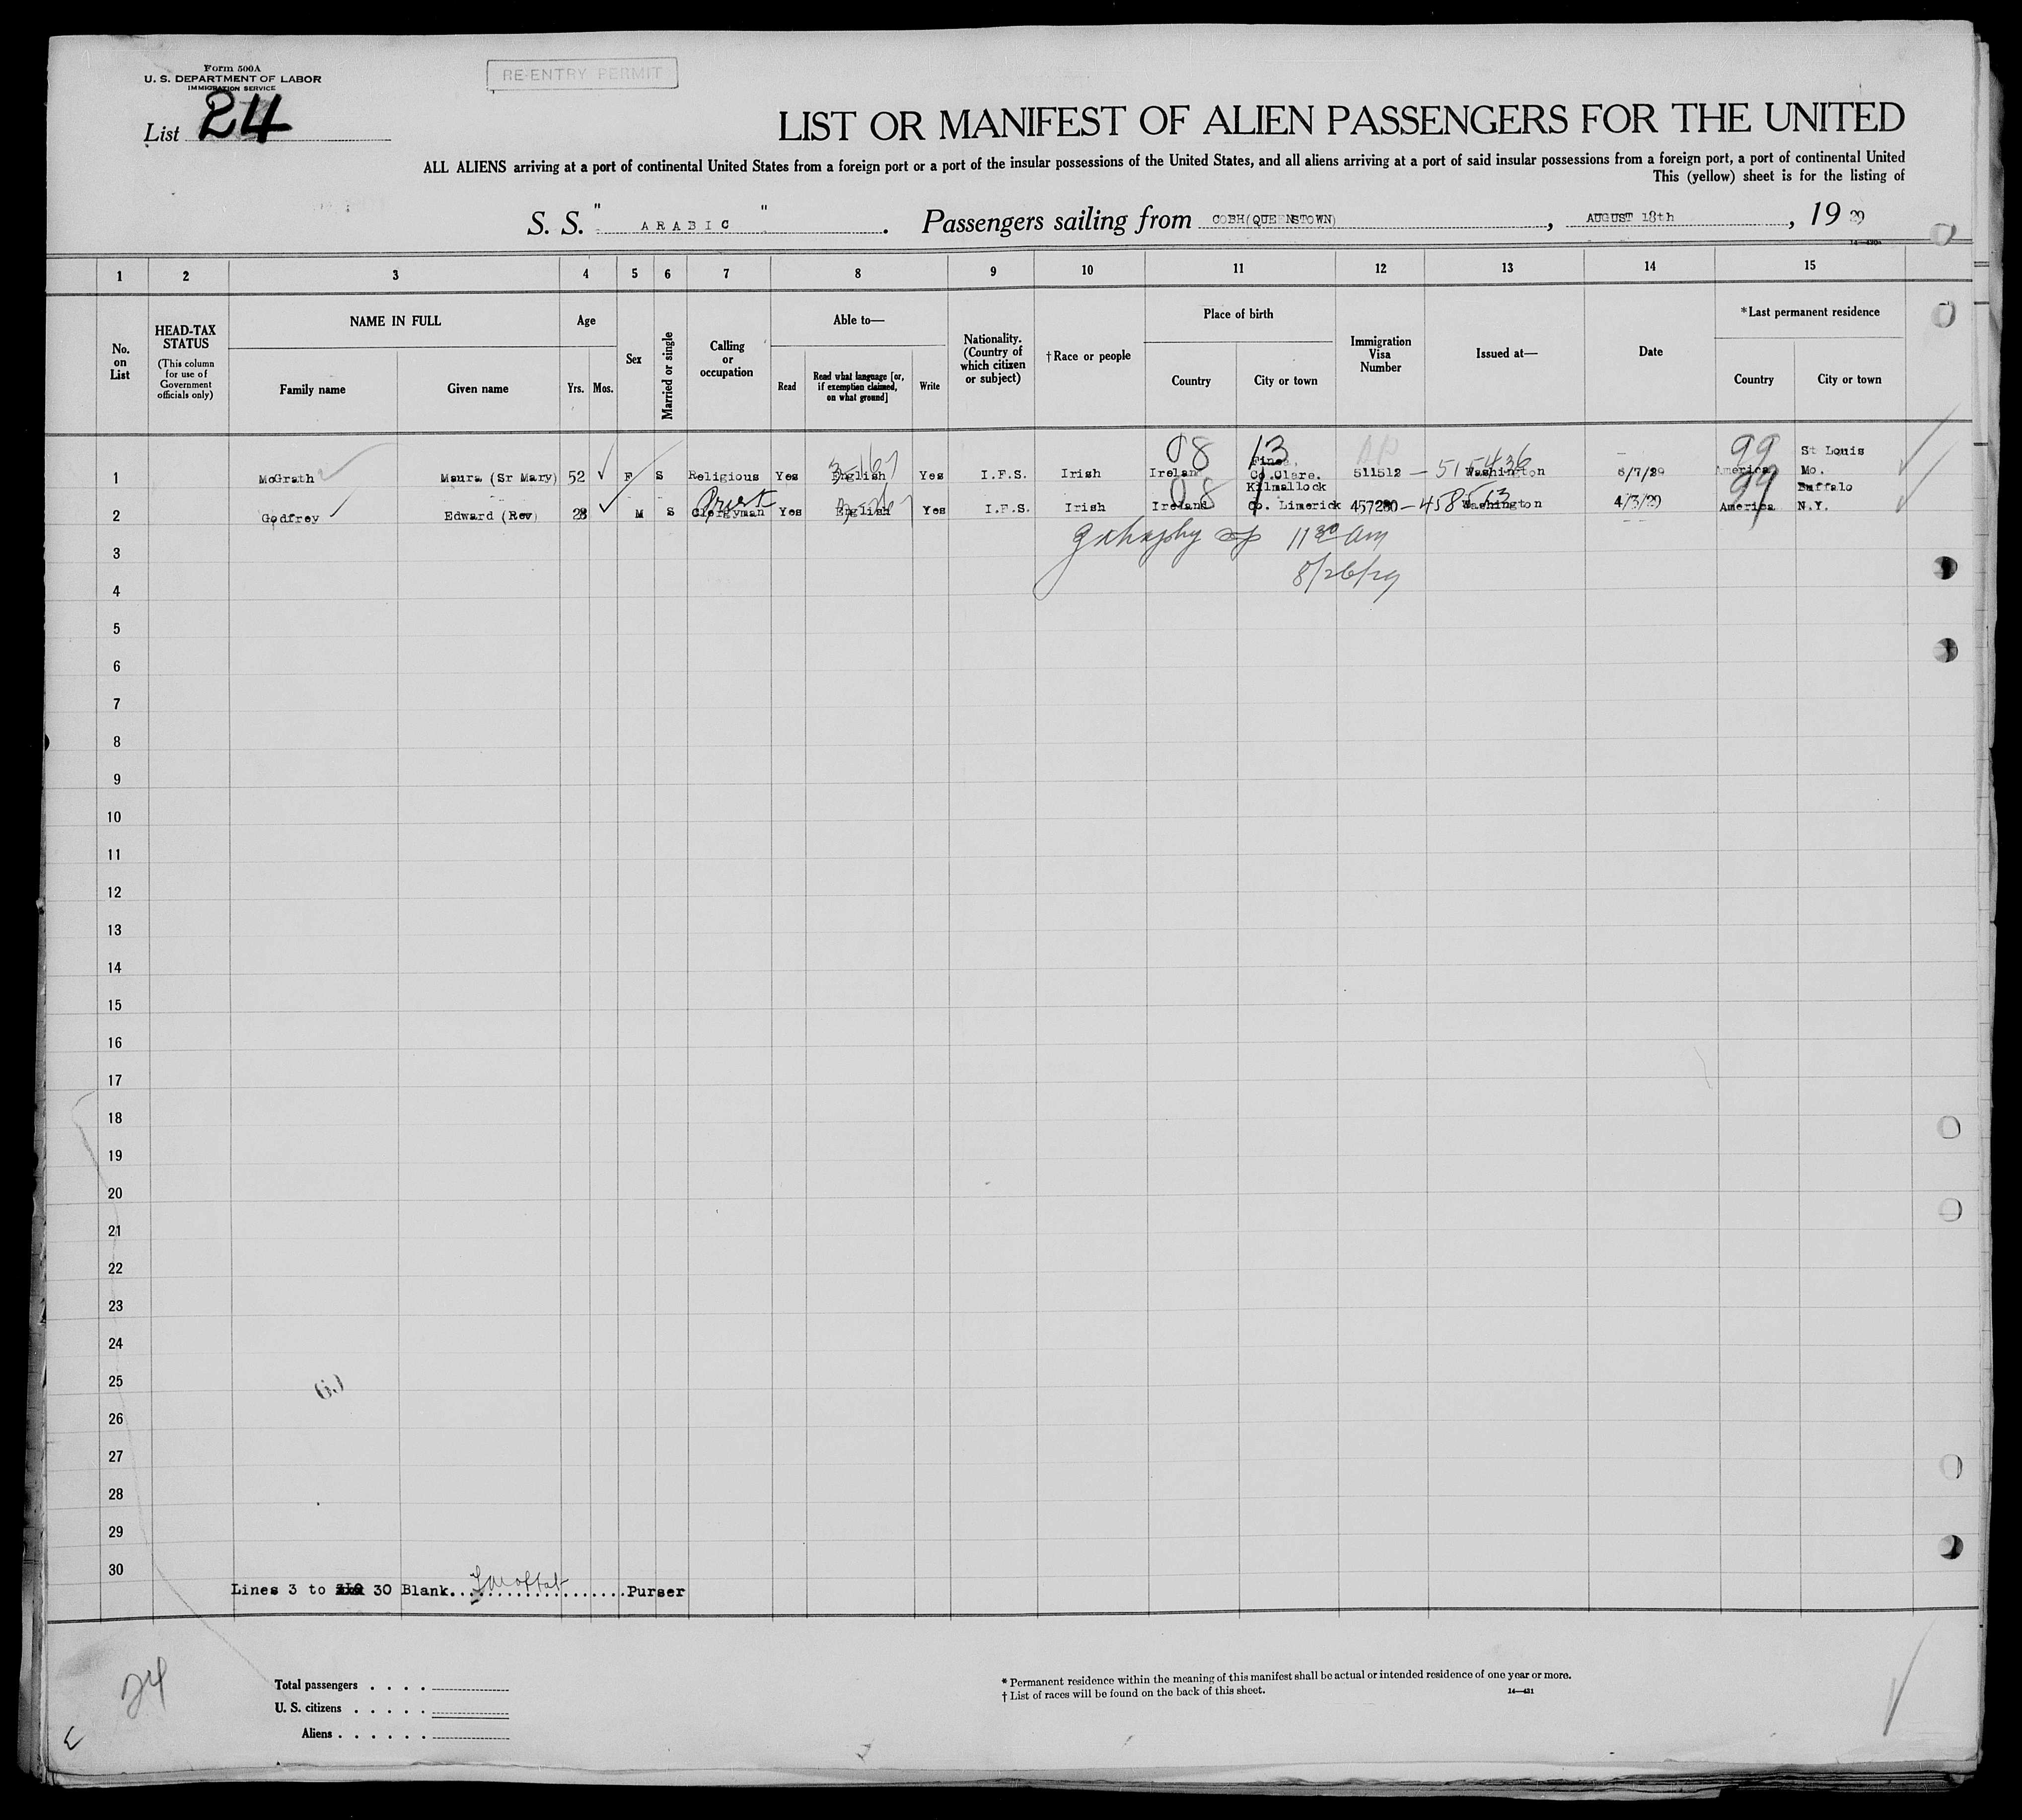 Form 500A
U. S. DEPARTMENT OF LABOR
IMMIGRATION SERVICE
RE-ENTRY PERMIT
List 24
LIST OR MANIFEST OF ALIEN PASSENGERS FOR THE UNITED
ALL ALIENS arriving at a port of continental United States from a foreign port or a port of the insular possessions of the United States, and all aliens arriving at a port of said insular possessions from a foreign port, a port of continental United
This (yellow) sheet is for the listing of
S. S. "ARABIC". Passengers sailing from COBH(QUEENSTOWN), AUGUST 18th, 19 29
1 2 3 4 5 6 7 8 9 10 11 12 13 14 15
No. on List
HEAD-TAX STATUS
(This column for use of Government officials only)
NAME IN FULL
Family name Given name
Age
Yrs. Mos.
Sex
Married or single
Calling or occupation
Able to—
Read Read what language [or, if exemption claimed, on what ground] Write
Nationality. (Country of which citizen or subject)
†Race or people
Place of birth
Country City or town
Immigration Visa Number
Issued at—
Date
*Last permanent residence
Country City or town
08 13 99 St Louis
1 McGrath Maura (Sr Mary) 52 F S Religious Yes English Yes I.F.S. Irish Ireland Co.Clare. 511512 — 515436 Washington 6/7/29 America Mo.
Priest 08 Kilmallock Buffalo
2 Godfrey Edward (Rev) 28 M S Clergyman Yes English Yes I.F.S. Irish Ireland Co. Limerick 457280 — 458513 Washington 4/3/29 America N.Y.
11 30 am
8/26/29
3
4
5
6
7
8
9
10
11
12
13
14
15
16
17
18
19
20
21
22
23
24
25
26
27
28
29
30
Lines 3 to 30 Blank. Purser
24
Total passengers . . . .
U. S. citizens . . . . .
Aliens . . . . . .
* Permanent residence within the meaning of this manifest shall be actual or intended residence of one year or more.
† List of races will be found on the back of this sheet.
14—431